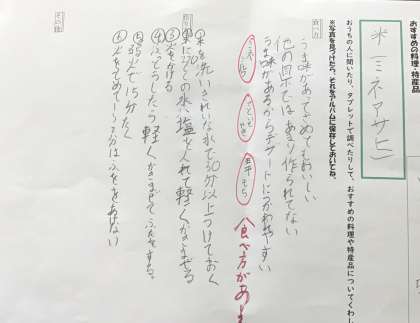 おすすめの料理・特産品
米(ミネアサヒ)
おうちの人に聞いたり、タブレットで調べたりして、おすすめの料理や特産品についてくわし
※写真を見つけたら、それをアルバムに保存しておいてね。
うま味があってさめてもおいしい
他の県ではあまり作られてない
うま味があるからデザートにつかわれやすい
五平もち
食べ方があ
作り方
①米を洗い、きれいな水で30分以上つけておく
塩を入れて軽くかきまぜる
③火をつける
④ふっとうしたら軽くかきまぜてふたをする。
⑤弱火で15分たく
⑥火をとめて
分はふたをあけない
その他